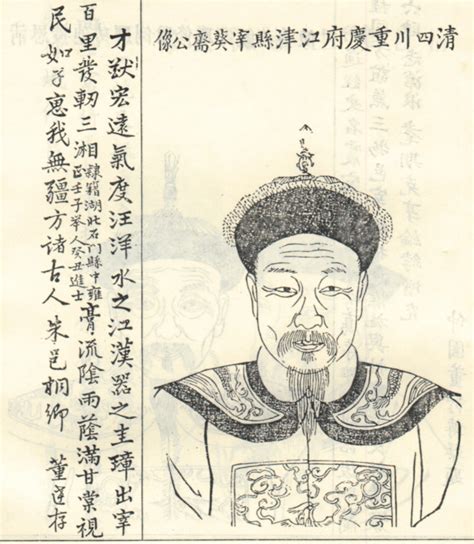 清四川重慶府江津縣宰葵裔公像
才猷宏遠氣度汪洋水之江漢器之圭璋出宰
百里發軔三湘隸籍湖北石門縣中雍正壬子舉人癸丑進士膏流陰雨蔭滿甘棠視
民如子惠我無疆方諸古人朱邑桐鄉 董存